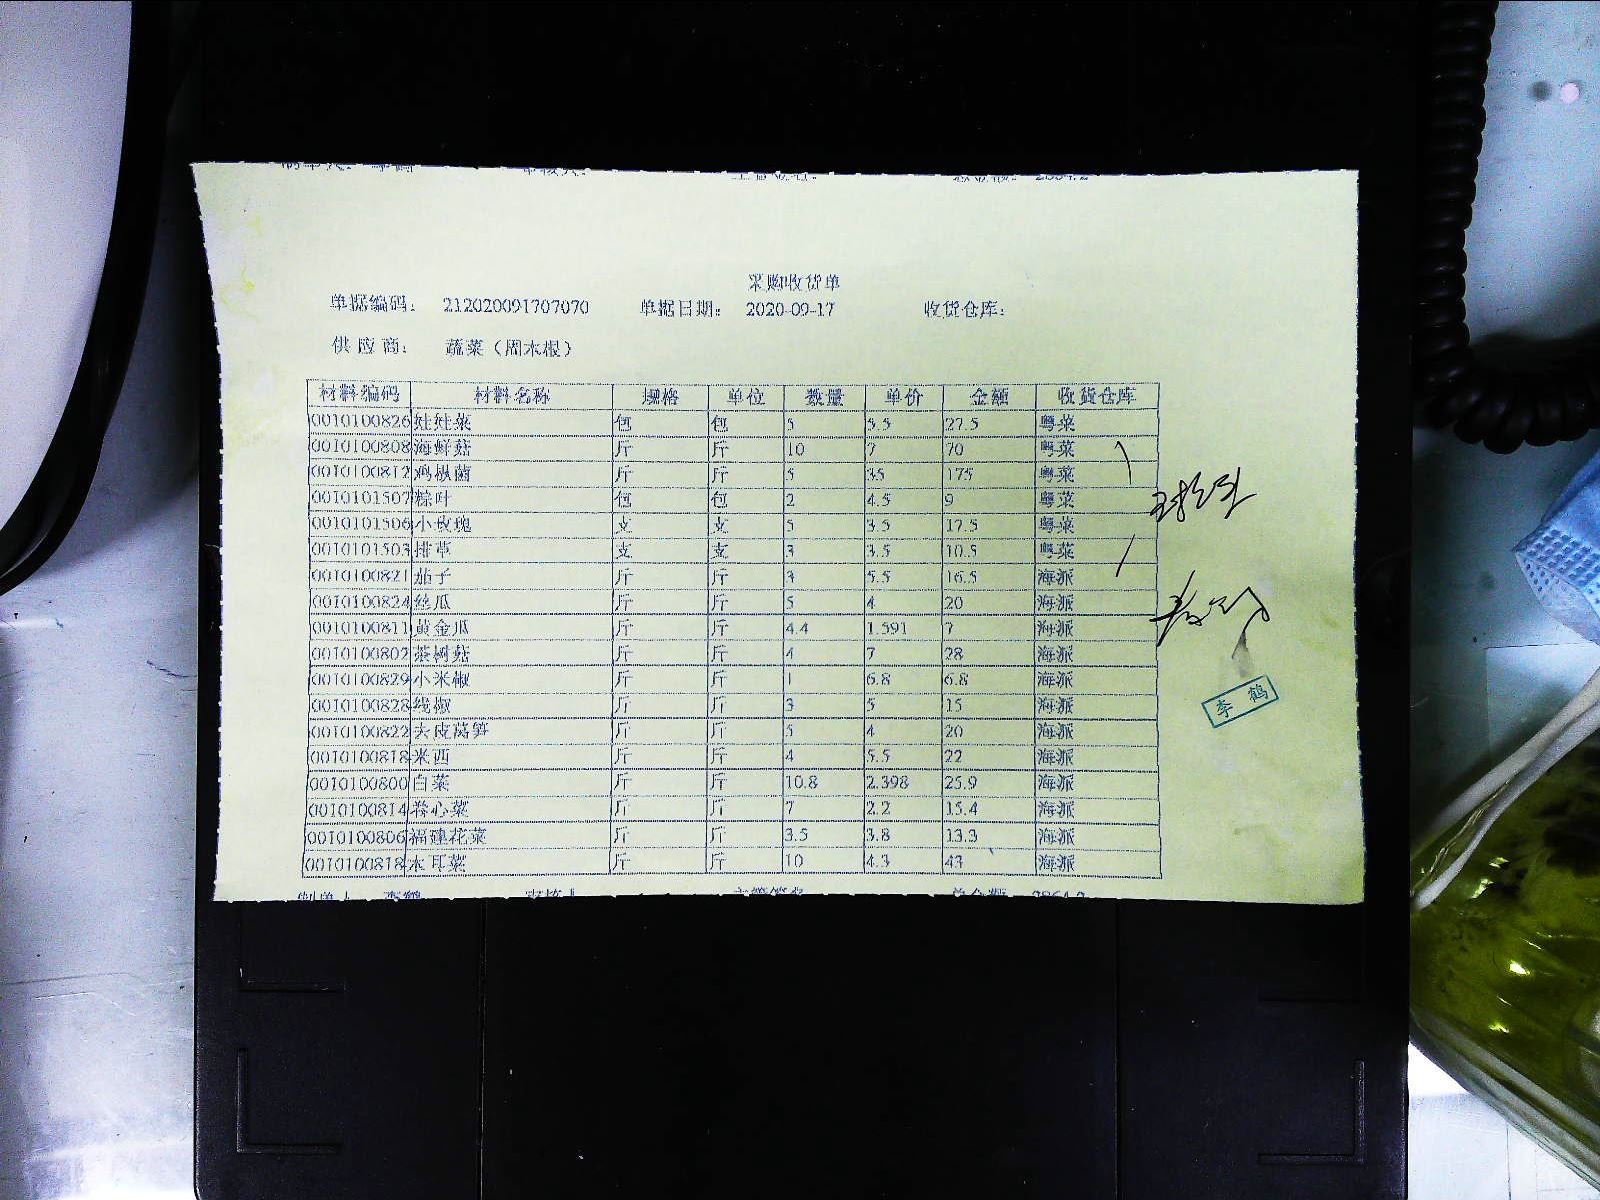 采购收货单
单据编码： 212020091707070 单据日期： 2020-09-17 收货仓库：
供应商： 蔬菜（周末根）
材料编码 材料名称 规格 单位 数量 单价 金额 收货仓库
0010100826 娃娃菜 包 包 5 5.5 27.5 粤菜
0010100808 海鲜菇 斤 斤 10 7 70 粤菜
0010100812 鸡枞菌 斤 斤 5 35 175 粤菜
0010101507 粽叶 包 包 2 4.5 9 粤菜
0010101506 小玫瑰 支 支 5 3.5 17.5 粤菜
0010101503 排草 支 支 3 3.5 10.5 粤菜
0010100821 茄子 斤 斤 3 5.5 16.5 海派
0010100824 丝瓜 斤 斤 5 4 20 海派
0010100811 黄金瓜 斤 斤 4.4 1.591 7 海派
0010100802 茶树菇 斤 斤 4 7 28 海派
0010100829 小米椒 斤 斤 1 6.8 6.8 海派
0010100828 线椒 斤 斤 3 5 15 海派
0010100822 去皮莴笋 斤 斤 5 4 20 海派
0010100818 米西 斤 斤 4 5.5 22 海派
0010100800 白菜 斤 斤 10.8 2.398 25.9 海派
0010100814 卷心菜 斤 斤 7 2.2 15.4 海派
0010100806 福建花菜 斤 斤 3.5 3.8 13.3 海派
0010100818 木耳菜 斤 斤 10 4.3 43 海派
李鹤